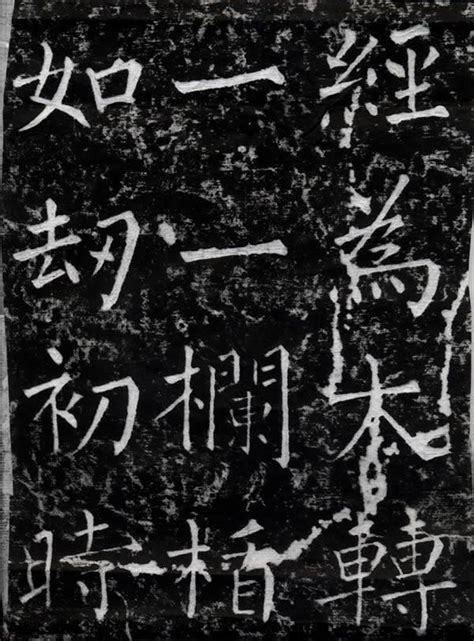 經為大轉
一一欄楯
如刧初時